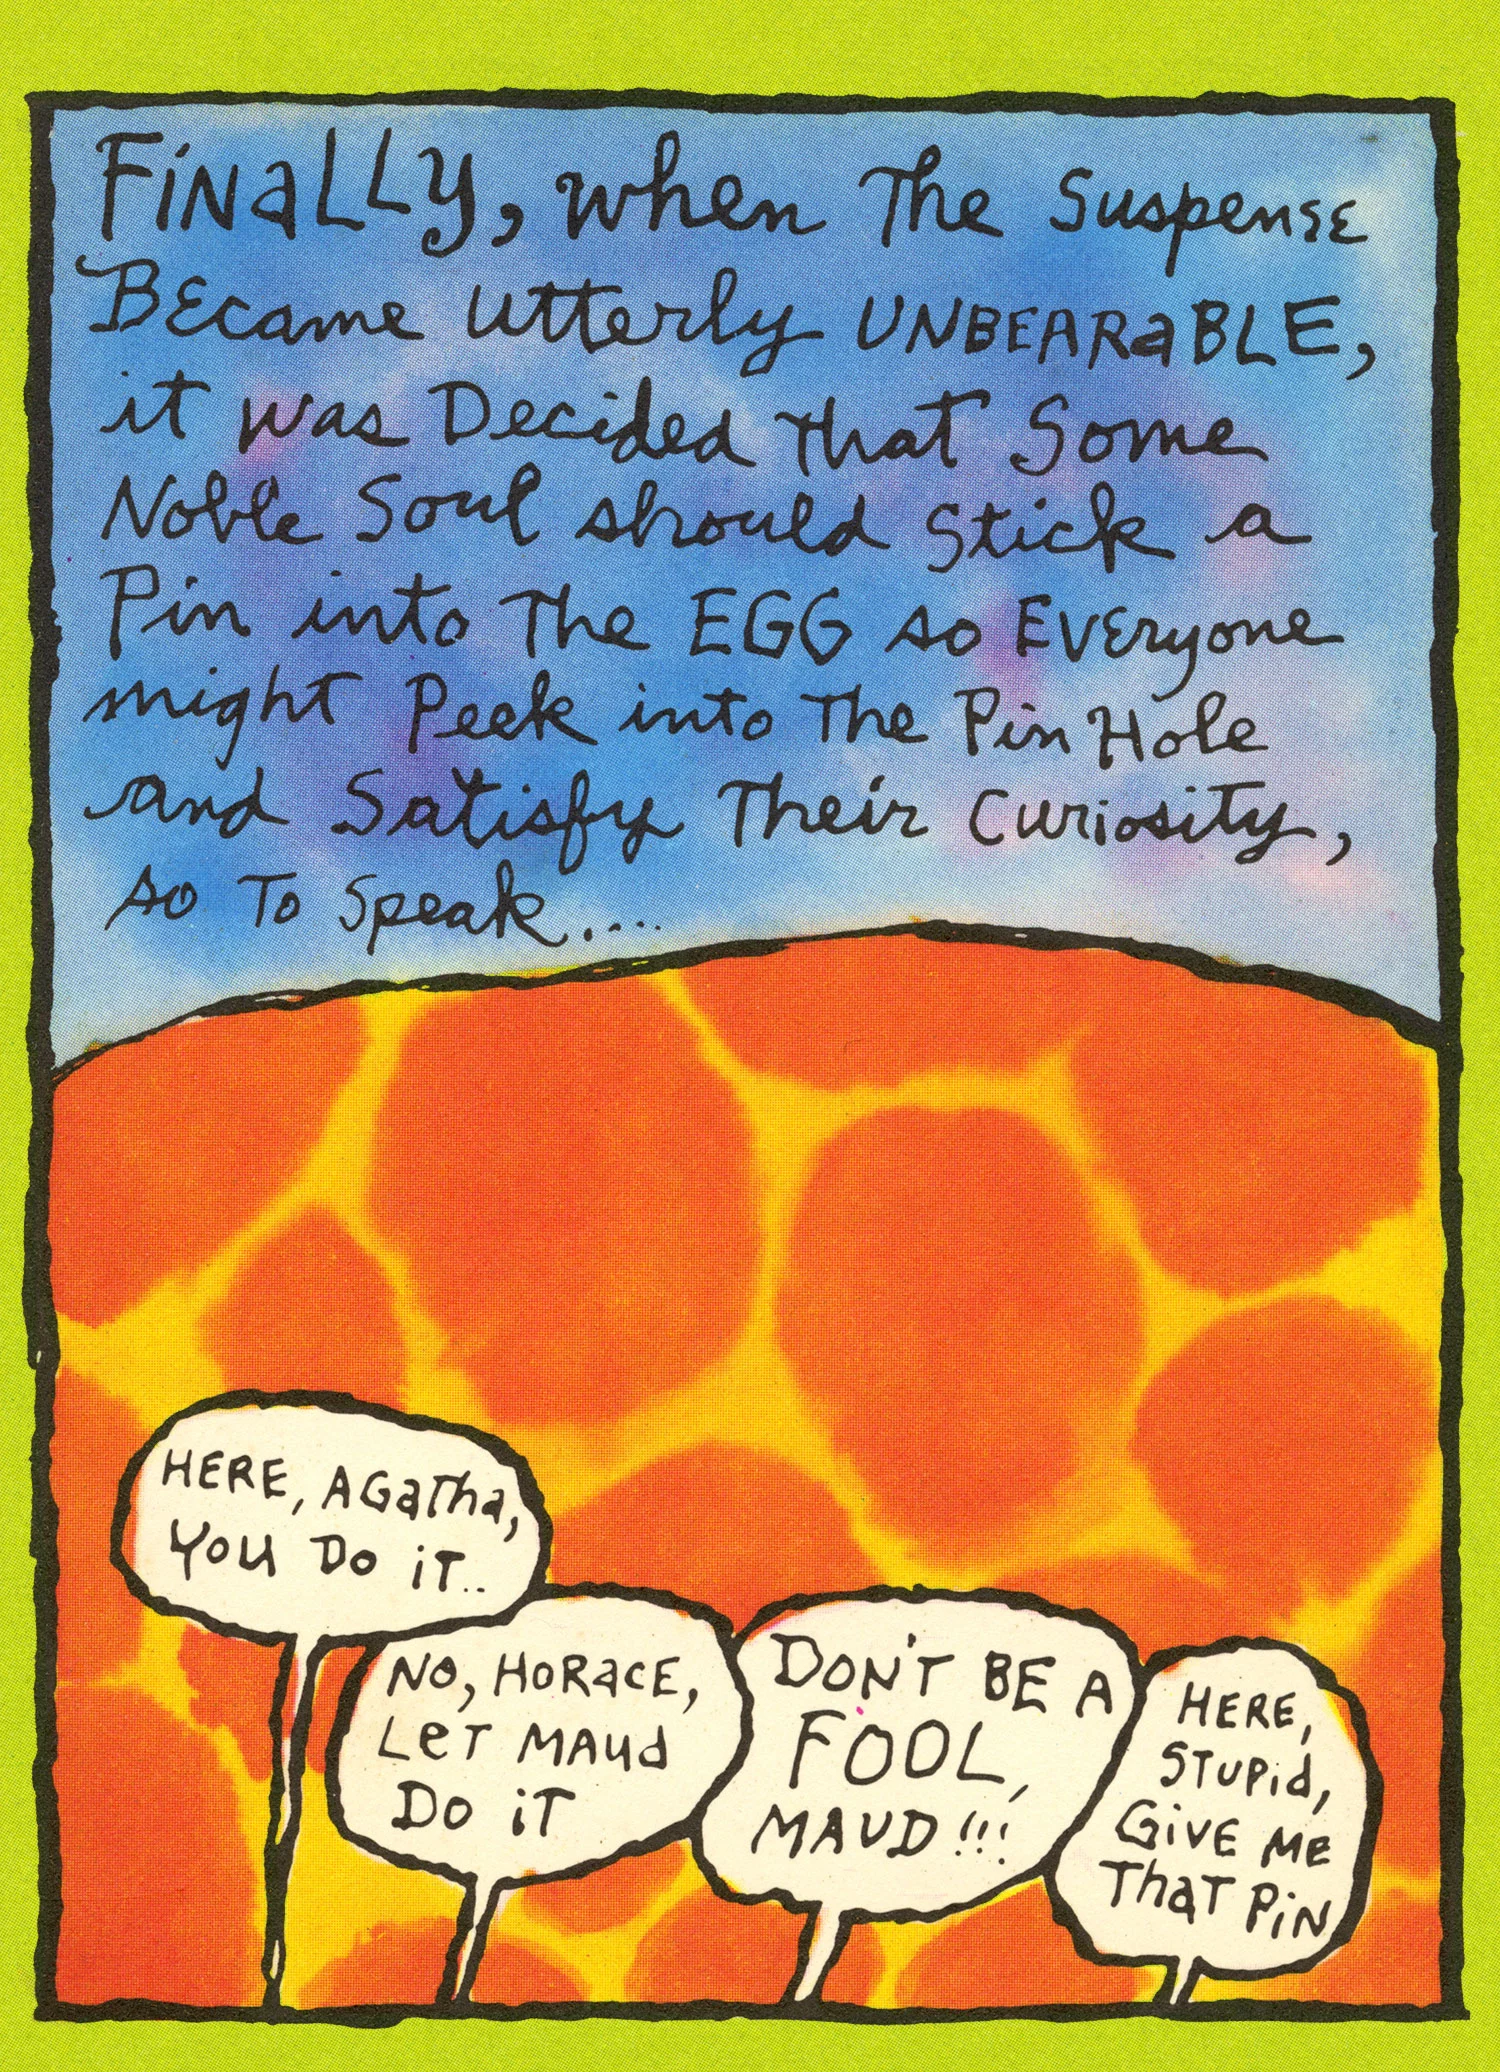 Finally, when The Suspense
Became utterly UNBEARaBLE,
it was Decided that Some
Noble Soul should Stick a
Pin into The EGG so Everyone
might Peek into The Pin Hole
and Satisfy Their Curiosity,
so To Speak....
HERE, AGaTha,
YOU Do iT..
No, HORacE,
LeT MAud
Do iT
DON'T BE A
FOOL,
MAUD!!!
HERE,
STUPid,
GiVE ME
ThaT PiN